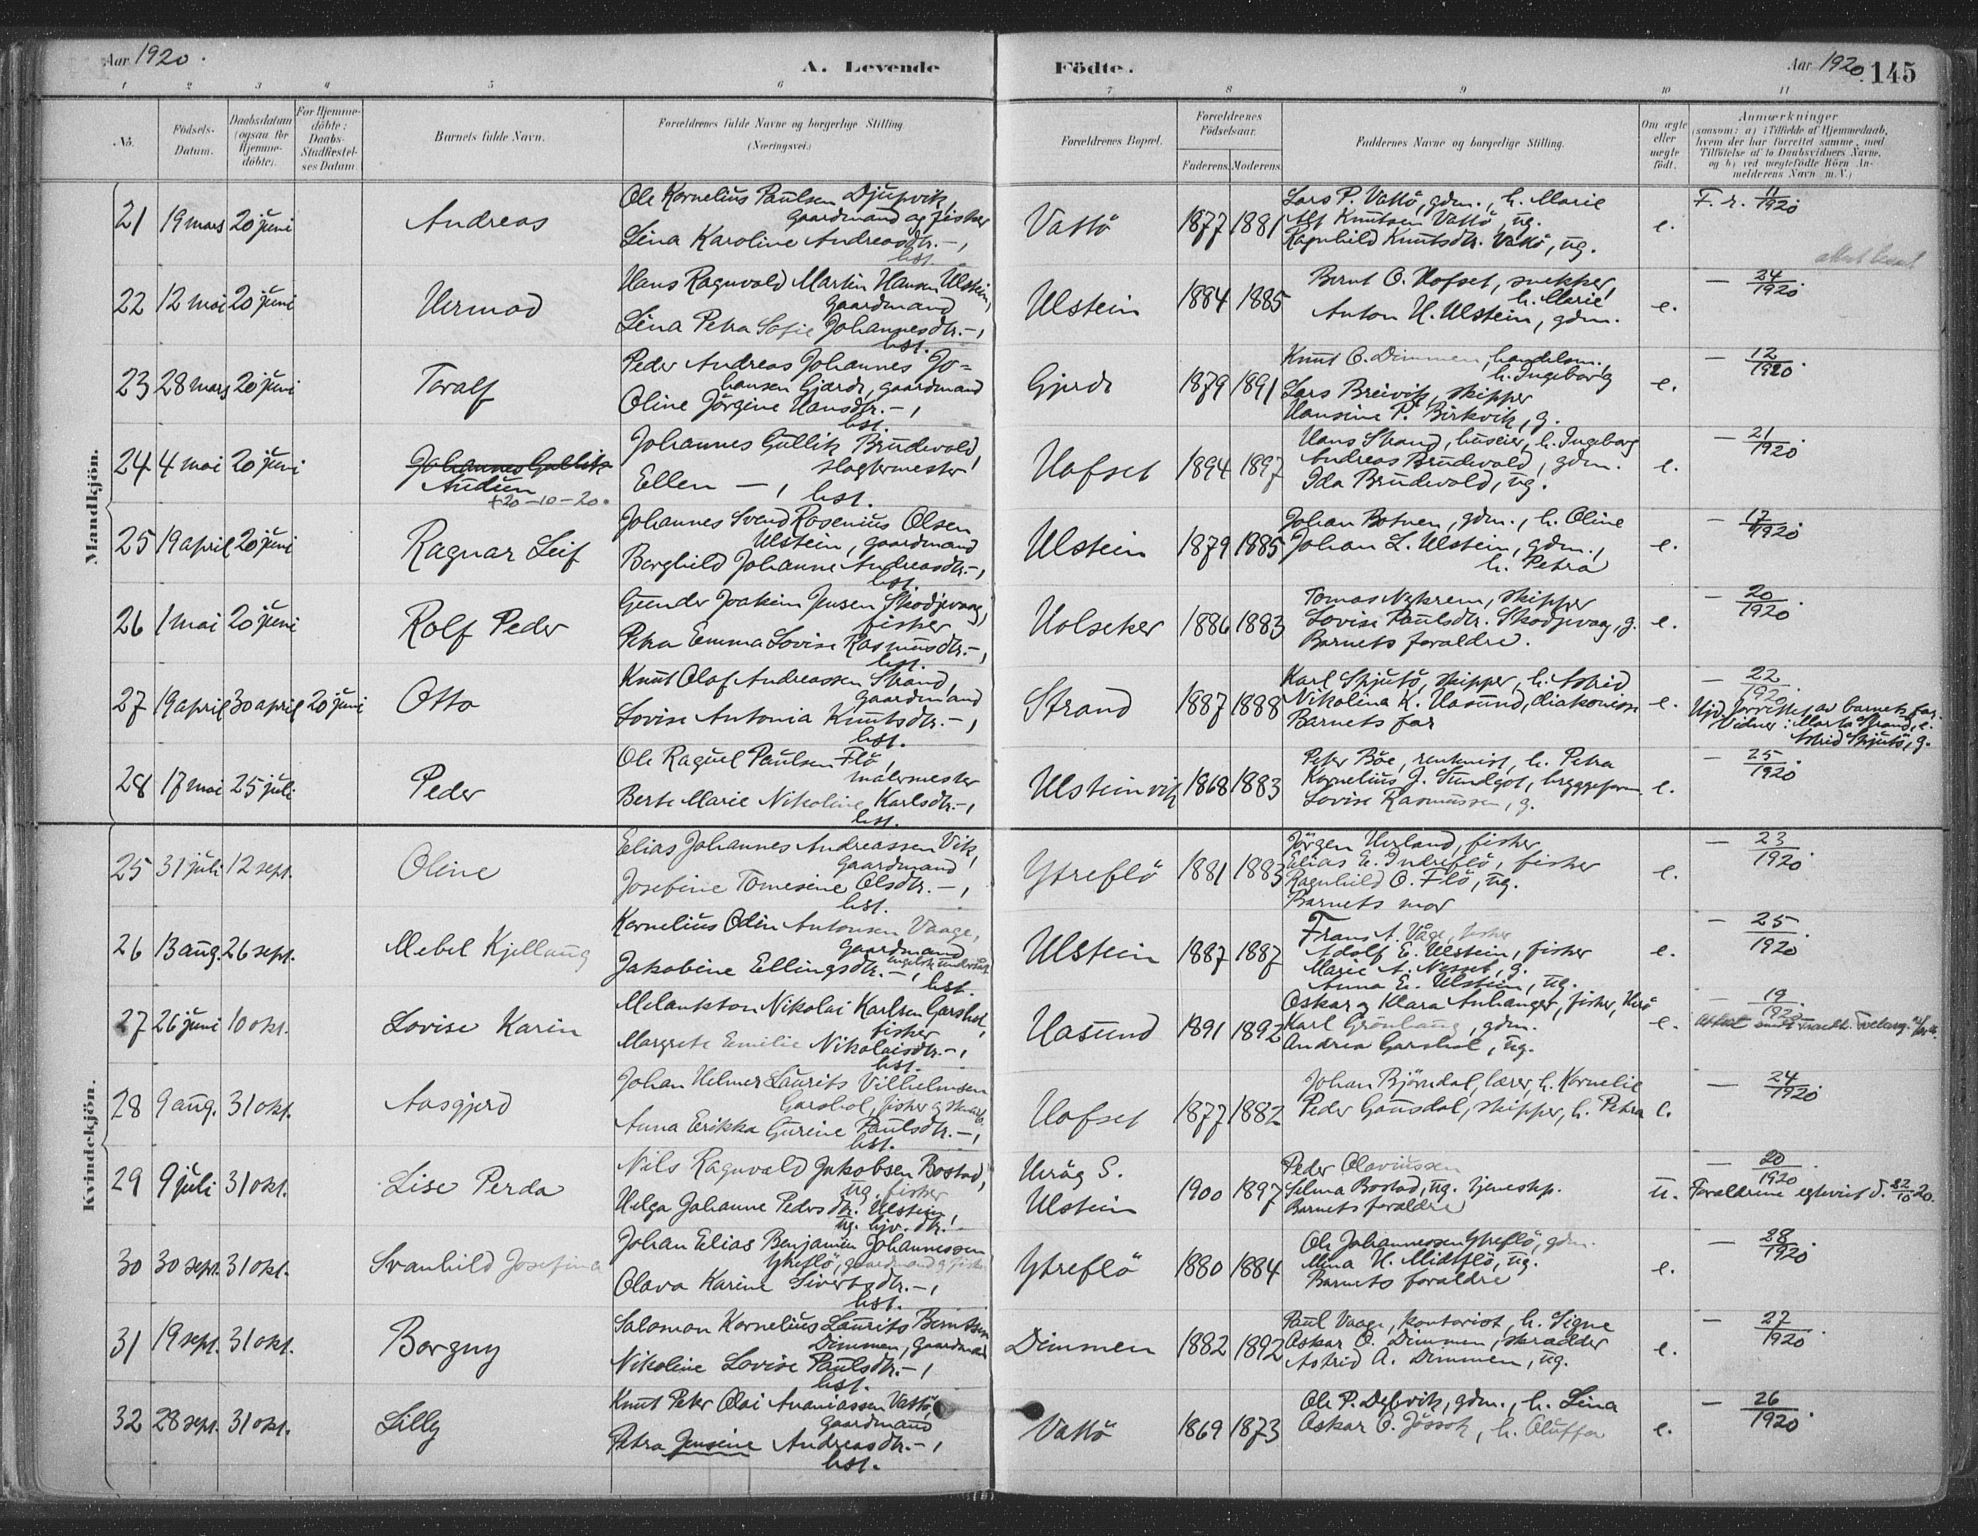 Aar 1920.
A. Levende Födte.
Aar 1920. 145
1 2 3 4 5 6 7 8 9 10 11
No.
Födsels-Datum.
Daabsdatum (ogsaa for Hjemme-döbte).
For Hjemme-döbte: Daabs-Stadfæstel-ses Datum.
Barnets fulde Navn.
Forældrenes fulde Navne og borgerlige Stilling (Næringsvei.)
Forældrenes Bopæl.
Forældrenes Födselsaar.
Faderens. Moderens.
Faddernes Navne og borgerlige Stilling.
Om ægte eller uægte födt.
Anmærkninger (saasom: a) i Tilfælde af Hjemmedaab, hvem der har forrettet samme, med Tilföielse af to Daabsvidners Navne, og b) ved uægtefödte Börn Anmelderens Navn m. V.)
Mandkjön.
21 19 mars 20 juni Andreas
Ole Kornelius Paulsen Djupvik,
gaardmand og fisker
Lina Karoline Andreasdtr. –,
hst.
Vattö 1877 1881
Lars P. Vattö, gdm., h. Marie
Alf Knutsen Vattö, ug.
Ragnhild Knutsdtr. Vattö, ug.
e. F. r. 11/1920.
22 12 mai 20 juni Hermod
Hans Ragnvald Martin Hansen Ulstein,
gaardmand
Lina Petra Sofie Johannesdtr. –,
hst.
Ulstein 1884 1885
Bernt O. Hofset, snekker,
h. Marie
Anton H. Ulstein, gdm.
e. – 24/1920.
23 28 mars 20 juni Toralf
Peder Andreas Johannes Jo=
hansen Gjærde, gaardmand
Oline Jörgine Hansdtr. –,
hst.
Gjerde 1879 1891
Knut O. Dimmen, handelsm.,
h. Ingeborg
Lars Breivik, skipper
Hansine P. Birkvik, g.
e. – 12/1920.
24 4 mai 20 juni Johannes Gullik
Audun
+20-10-20.
Johannes Gullik Brudevold,
slagtermester
Ellen –, hst.
Hofset 1894 1897
Hans Strand, huseier, h. Ingeborg
Andreas Brudevold, gdm.
Ida Brudevold, ug.
e. – 21/1920.
25 19 april 20 juni Ragnar Leif
Johannes Svend Rosenius Olsen
Ulstein, gaardmand
Borghild Johanne Andreasdtr. –,
hst.
Ulstein 1879 1885
Johan Botnen, gdm., h. Oline
Johan L. Ulstein, gdm.,
h. Petra
e. – 17/1920.
26 1 mai 20 juni Rolf Peder
Gunder Joakim Jensen Skodjevaag,
fisker
Petra Emma Lovise Rasmusdtr. –,
hst.
Holseker 1886 1883
Tomas Nykrem, skipper
Lovise Paulsdtr. Skodjevaag, g.
Barnets foraldre.
e. – 20/1920.
27 19 april 30 april 20 juni Otto
Knut Olaf Andreassen Strand,
gaardmand
Lovise Antonia Knutsdtr. –,
hst.
Strand 1887 1888
Karl Skjutö, skipper, h. Astrid
Nikolina K. Hasund, diakonisse
Barnets far
e. – 22/1920.
Hjd. forrettet av barnets far.
Vidner: Marta Strand, e.
Astrid Skjutö, g.
28 17 mai 25 juli Peder
Ole Raguel Paulsen Flö,
malermester
Berte Marie Nikoline Karlsdtr. –,
hst.
Ulsteinvik 1868 1883
Peter Böe, rentenist, h. Petra
Kornelius J. Sundgot, byggeform.
Lovise Rasmussen, g.
e. – 25/1920.
Kvindekjön.
25 31 juli 12 sept. Oline
Elias Johannes Andreassen Vik,
gaardmand
Josefine Tomesine Olsdtr. –,
hst.
Ytreflö 1881 1883
Jörgen Herland, fisker
Elias E. Indreflö, fisker
Ragnhild O. Flö, ug.
Barnets mor
e. – 23/1920.
26 13 aug. 26 sept. Mebel Kjellaug
Kornelius Odin Antonsen Vaage,
gaardmand
engelsk undersåt
Jakobine Ellingsdtr. –,
hst.
Ulstein 1887 1887
Frans A. Våge, fisker
Adolf E. Ulstein, fisker
Marie A. Nesset, g.
Anna E. Ulstein, ug.
e. – 25/1920.
27 26 juni 10 okt. Lovise Karin
Melankton Nikolai Karlsen Garshol,
fisker
Margrete Emilie Nikolaisdtr. –,
hst.
Hasund 1891 1892
Oskar og Klara Anhanger, fisker, Herö
Karl Grönhaug, gdm.
Andrea Garshol, ug.
e. – 19/1920.
28 9 aug. 31 okt. Aasgjerd
Johan Helmer Laurits Vilhelmsen
Garshol, fisker
Anna Erikka Gurine Paulsdtr. –,
hst.
Hofset 1877 1882
Johan Björndal, lærer, h. Kornelie
Peder Gausdal, skipper, h. Petra
e. – 24/1920.
29 9 juli 31 okt. Lise Perda
Nils Ragnvald Jakobsen Bostad,
ug. fisker
Helga Johanne Pedersdtr. Ulstein,
ug. hjv. dtr.
Ulstein 1900 1897
Peder Olaviussen
Selma Bostad, ug. tjenestp.
Barnets foraldre
u. – 20/1920.
Foraldrene egteviet d. 22/10 20.
30 30 sept. 31 okt. Svanhild Josefina
Johan Elias Benjamin Johannessen
Ytreflö, gaardmand og fisker
Olava Karine Sivertsdtr. –,
hst.
Ytreflö 1880 1884
Ole Johannessen Ytreflö, gdm.
Mina H. Midtflö, ug.
Barnets foraldre
e. – 28/1920.
31 19 sept. 31 okt. Borgny
Salomon Kornelius Laurits Berntsen
Dimmen, gaardmand
Nikoline Lovise Paulsdtr. –,
hst.
Dimmen 1882 1892
Paul Vaage, kontorist, h. Signe
Oskar O. Dimmen, skrædder
Astrid A. Dimmen, ug.
e. – 27/1920.
32 28 sept. 31 okt. Lilly
Knut Peter Olai Ananiassen Vattö,
gaardmand
Petra Jensine Andreasdtr. –,
hst.
Vattö 1869 1873
Ole P. Debvik, gdm., h. Lina
Oskar O. Jössok, h. Oluffa
e. – 26/1920.